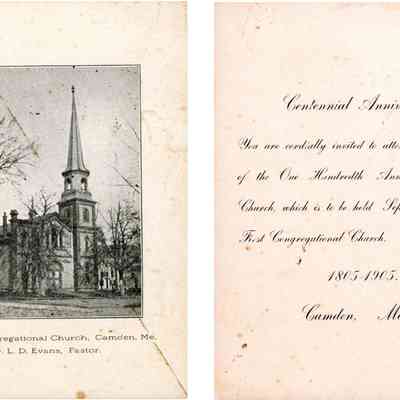 regational Church, Camden, Me.
L. D. Evans, Pastor.
Centennial Anniv
You are cordially invited to atte
of the One Hundredth Ann
Church, which is to be held Sep
First Congregational Church.
1805-1905.
Camden, M